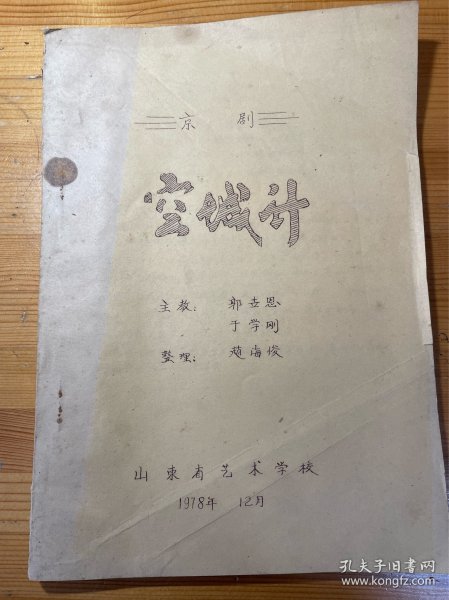 京 剧
空城计
主教: 郭世恩
于学刚
整理: 赵海俊
山東省艺术学校
1978年 12月
孔夫子旧书网
www.kongfz.com